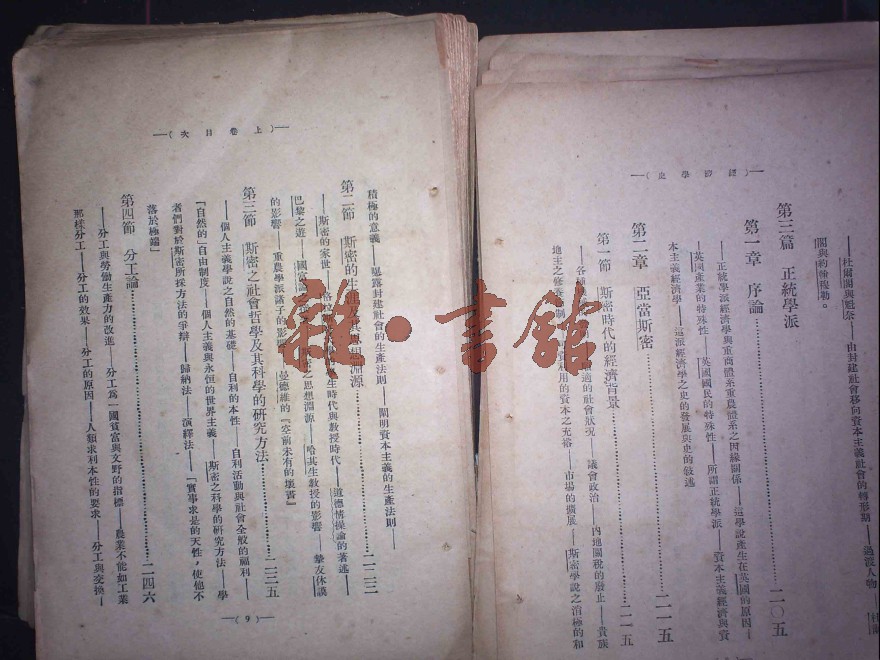 經濟學史
——杜爾閣與魁奈——由封建社會移向資本主義社會的轉形期——過渡人物——杜爾
閣與約翰穆勒。
第三篇 正統學派
第一章 序論……二〇五
——正統學派經濟學與重商體系重農體系之因緣關係——這學說產生在英國的原因——
——英國產業的特殊性——英國國民的特殊性——所謂正統學派——資本主義經濟與資
本主義經濟學——這派經濟學之史的發展與史的敍述
第二章 亞當斯密……二一五
第一節 斯密時代的經濟背景……二一五
適的社會狀況——議會政治——內地關稅的廢止——貴族
地主之修養 用的資本之充裕——市場的擴展——斯密學說之消極的和
上卷目次
積極的意義——暴露封建社會的生產法則——闡明資本主義的生產法則——
第二節 斯密的生 及其思想淵源……二二二
——斯密的家世 生時代與教授時代——道德情操論的著述——
巴黎之遊——國富論 之思想淵源——哈其生教授的影響——摯友休謨
的影響——重農學派諸子的影響——曼德維的「空前未有的壞書」
第三節 斯密之社會哲學及其科學的研究方法……二三五
——個人主義學說之自然的基礎——自利的本性——自利活動與社會全般的福利——
「自然的」自由制度——個人主義與永恒的世界主義——斯密之科學的研究方法——學
者們對於斯密所採方法的爭辯——歸納法——演繹法——「實事求是的天性，使他不
落於極端」
第四節 分工論……二四六
——分工與勞働生產力的改進——分工爲一國貧富與文野的指標——農業不能如工業
那樣分工——分工的效果——分工的原因——人類求利本性的要求——分工與交換——
(9)
雜·書館